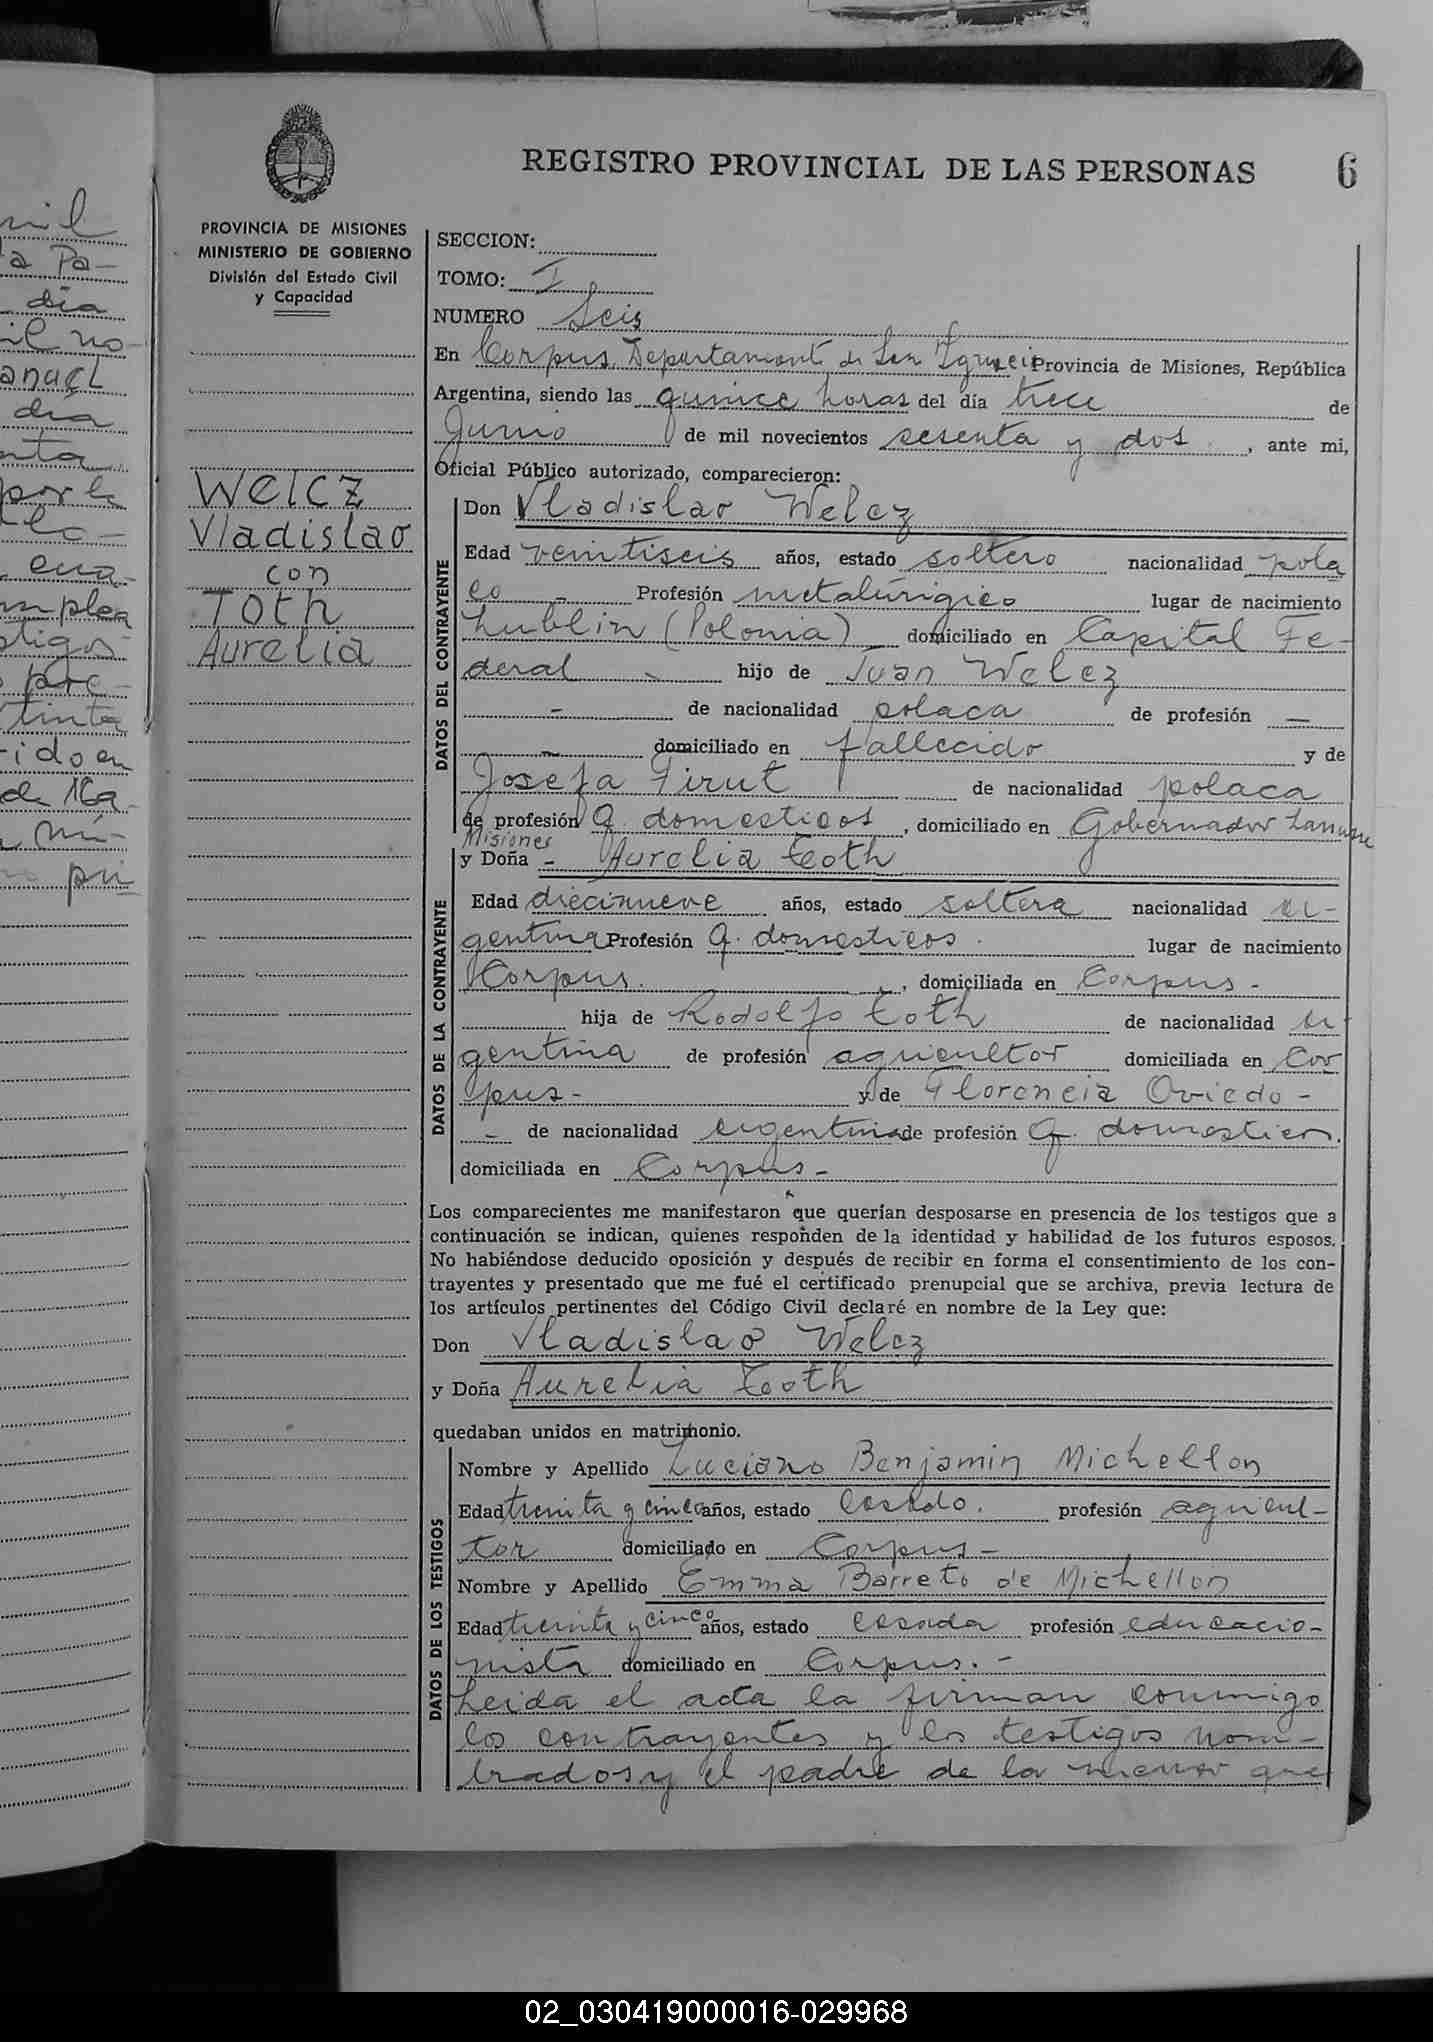 REGISTRO PROVINCIAL DE LAS PERSONAS 6
PROVINCIA DE MISIONES
MINISTERIO DE GOBIERNO
División del Estado Civil
y Capacidad
Welcz
Vladislao
con
Toth
Aurelia
SECCION:
TOMO: I
NUMERO Seis
En Corpus, Departamento de San Ignacio Provincia de Misiones, República
Argentina, siendo las quince horas del día trece de
Junio de mil novecientos sesenta y dos, ante mi,
Oficial Público autorizado, comparecieron:
DATOS DEL CONTRAYENTE
Don Vladislao Welcz
Edad veintiseis años, estado soltero nacionalidad pola
ca - Profesión metalúrigico lugar de nacimiento
Lublin (Polonia) domiciliado en Capital Fe-
deral hijo de Juan Welcz
- de nacionalidad polaca de profesión —
— domiciliado en fallecido y de
Josefa Firut de nacionalidad polaca
de profesión Q. domesticos, domiciliado en Gobernador Lanusse
Misiones
DATOS DE LA CONTRAYENTE
y Doña - Aurelia Toth
Edad diecinueve años, estado soltera nacionalidad ar-
gentina Profesión Q. domesticos. lugar de nacimiento
Corpus. , domiciliada en Corpus -
hija de Rodolfo Toth de nacionalidad ar-
gentina de profesión agricultor domiciliada en Cor
pus - y de Florencia Oviedo -
- de nacionalidad argentina de profesión Q. domesticos.
domiciliada en Corpus -
Los comparecientes me manifestaron que querían desposarse en presencia de los testigos que a
continuación se indican, quienes responden de la identidad y habilidad de los futuros esposos.
No habiéndose deducido oposición y después de recibir en forma el consentimiento de los con-
trayentes y presentado que me fué el certificado prenupcial que se archiva, previa lectura de
los artículos pertinentes del Código Civil declaré en nombre de la Ley que:
Don Vladislao Welcz
y Doña Aurelia Toth
quedaban unidos en matrimonio.
DATOS DE LOS TESTIGOS
Nombre y Apellido Luciano Benjamin Michellon
Edad treinta y cinco años, estado casado. profesión agricul-
tor domiciliado en Corpus -
Nombre y Apellido Emma Barreto de Michellon
Edad treinta y cinco años, estado casada profesión educacio-
nista domiciliado en Corpus. -
Leida el acta la firman conmigo
los contrayentes y los testigos nom-
brados y el padre de la menor que
02_030419000016-029968